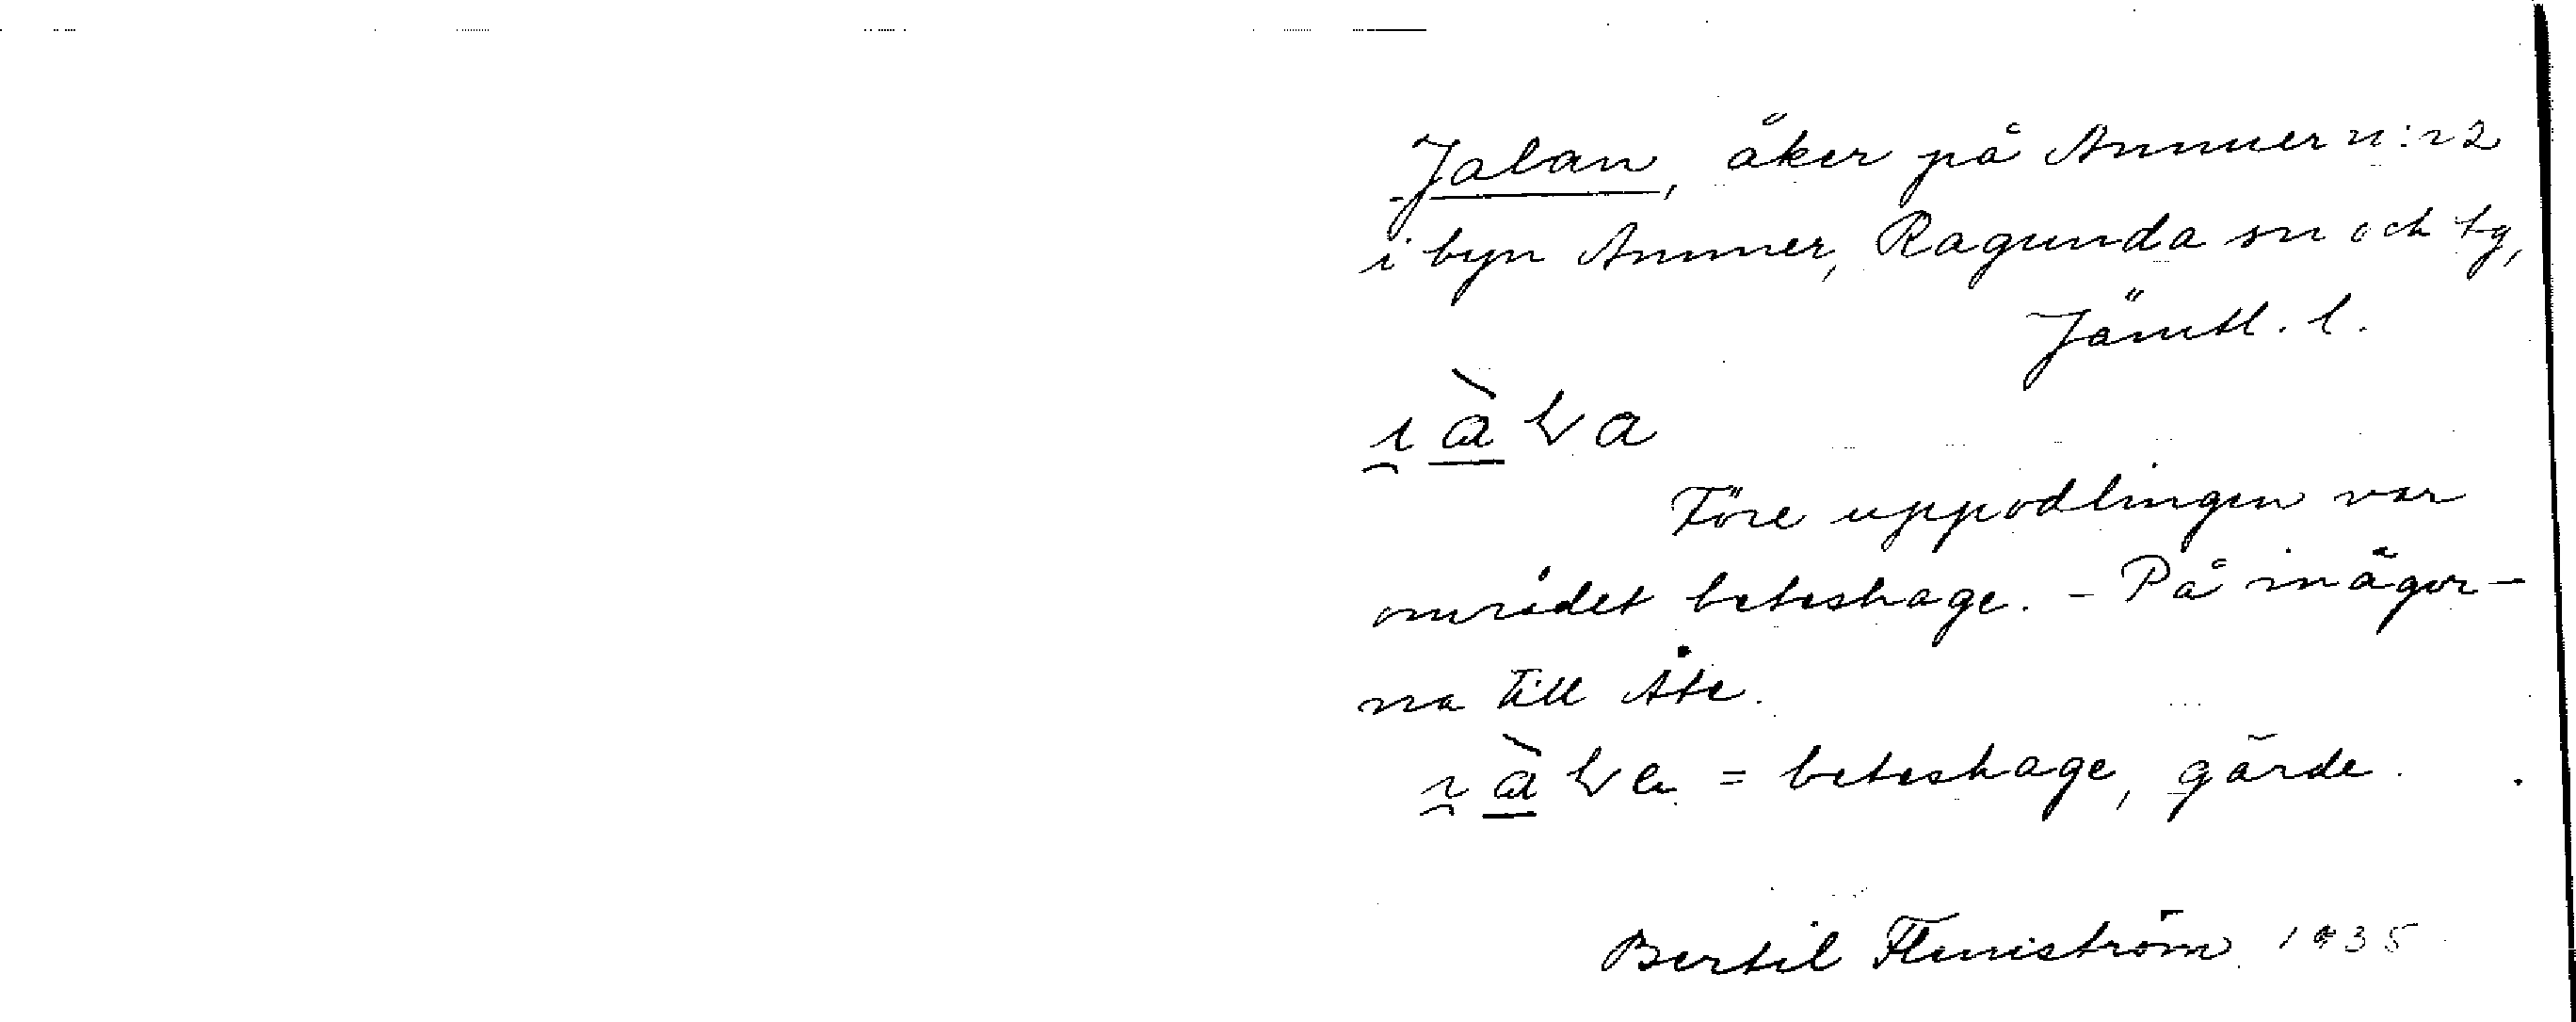 Jalan, åker på Ammer n:r 2
i byn Ammer, Ragunda sn och tg,
Jämtl. l.
Före uppodlingen var
området beteshage. - På inägor-
na till Åte.
= beteshage, gärde.
Bertil Flemström 1935